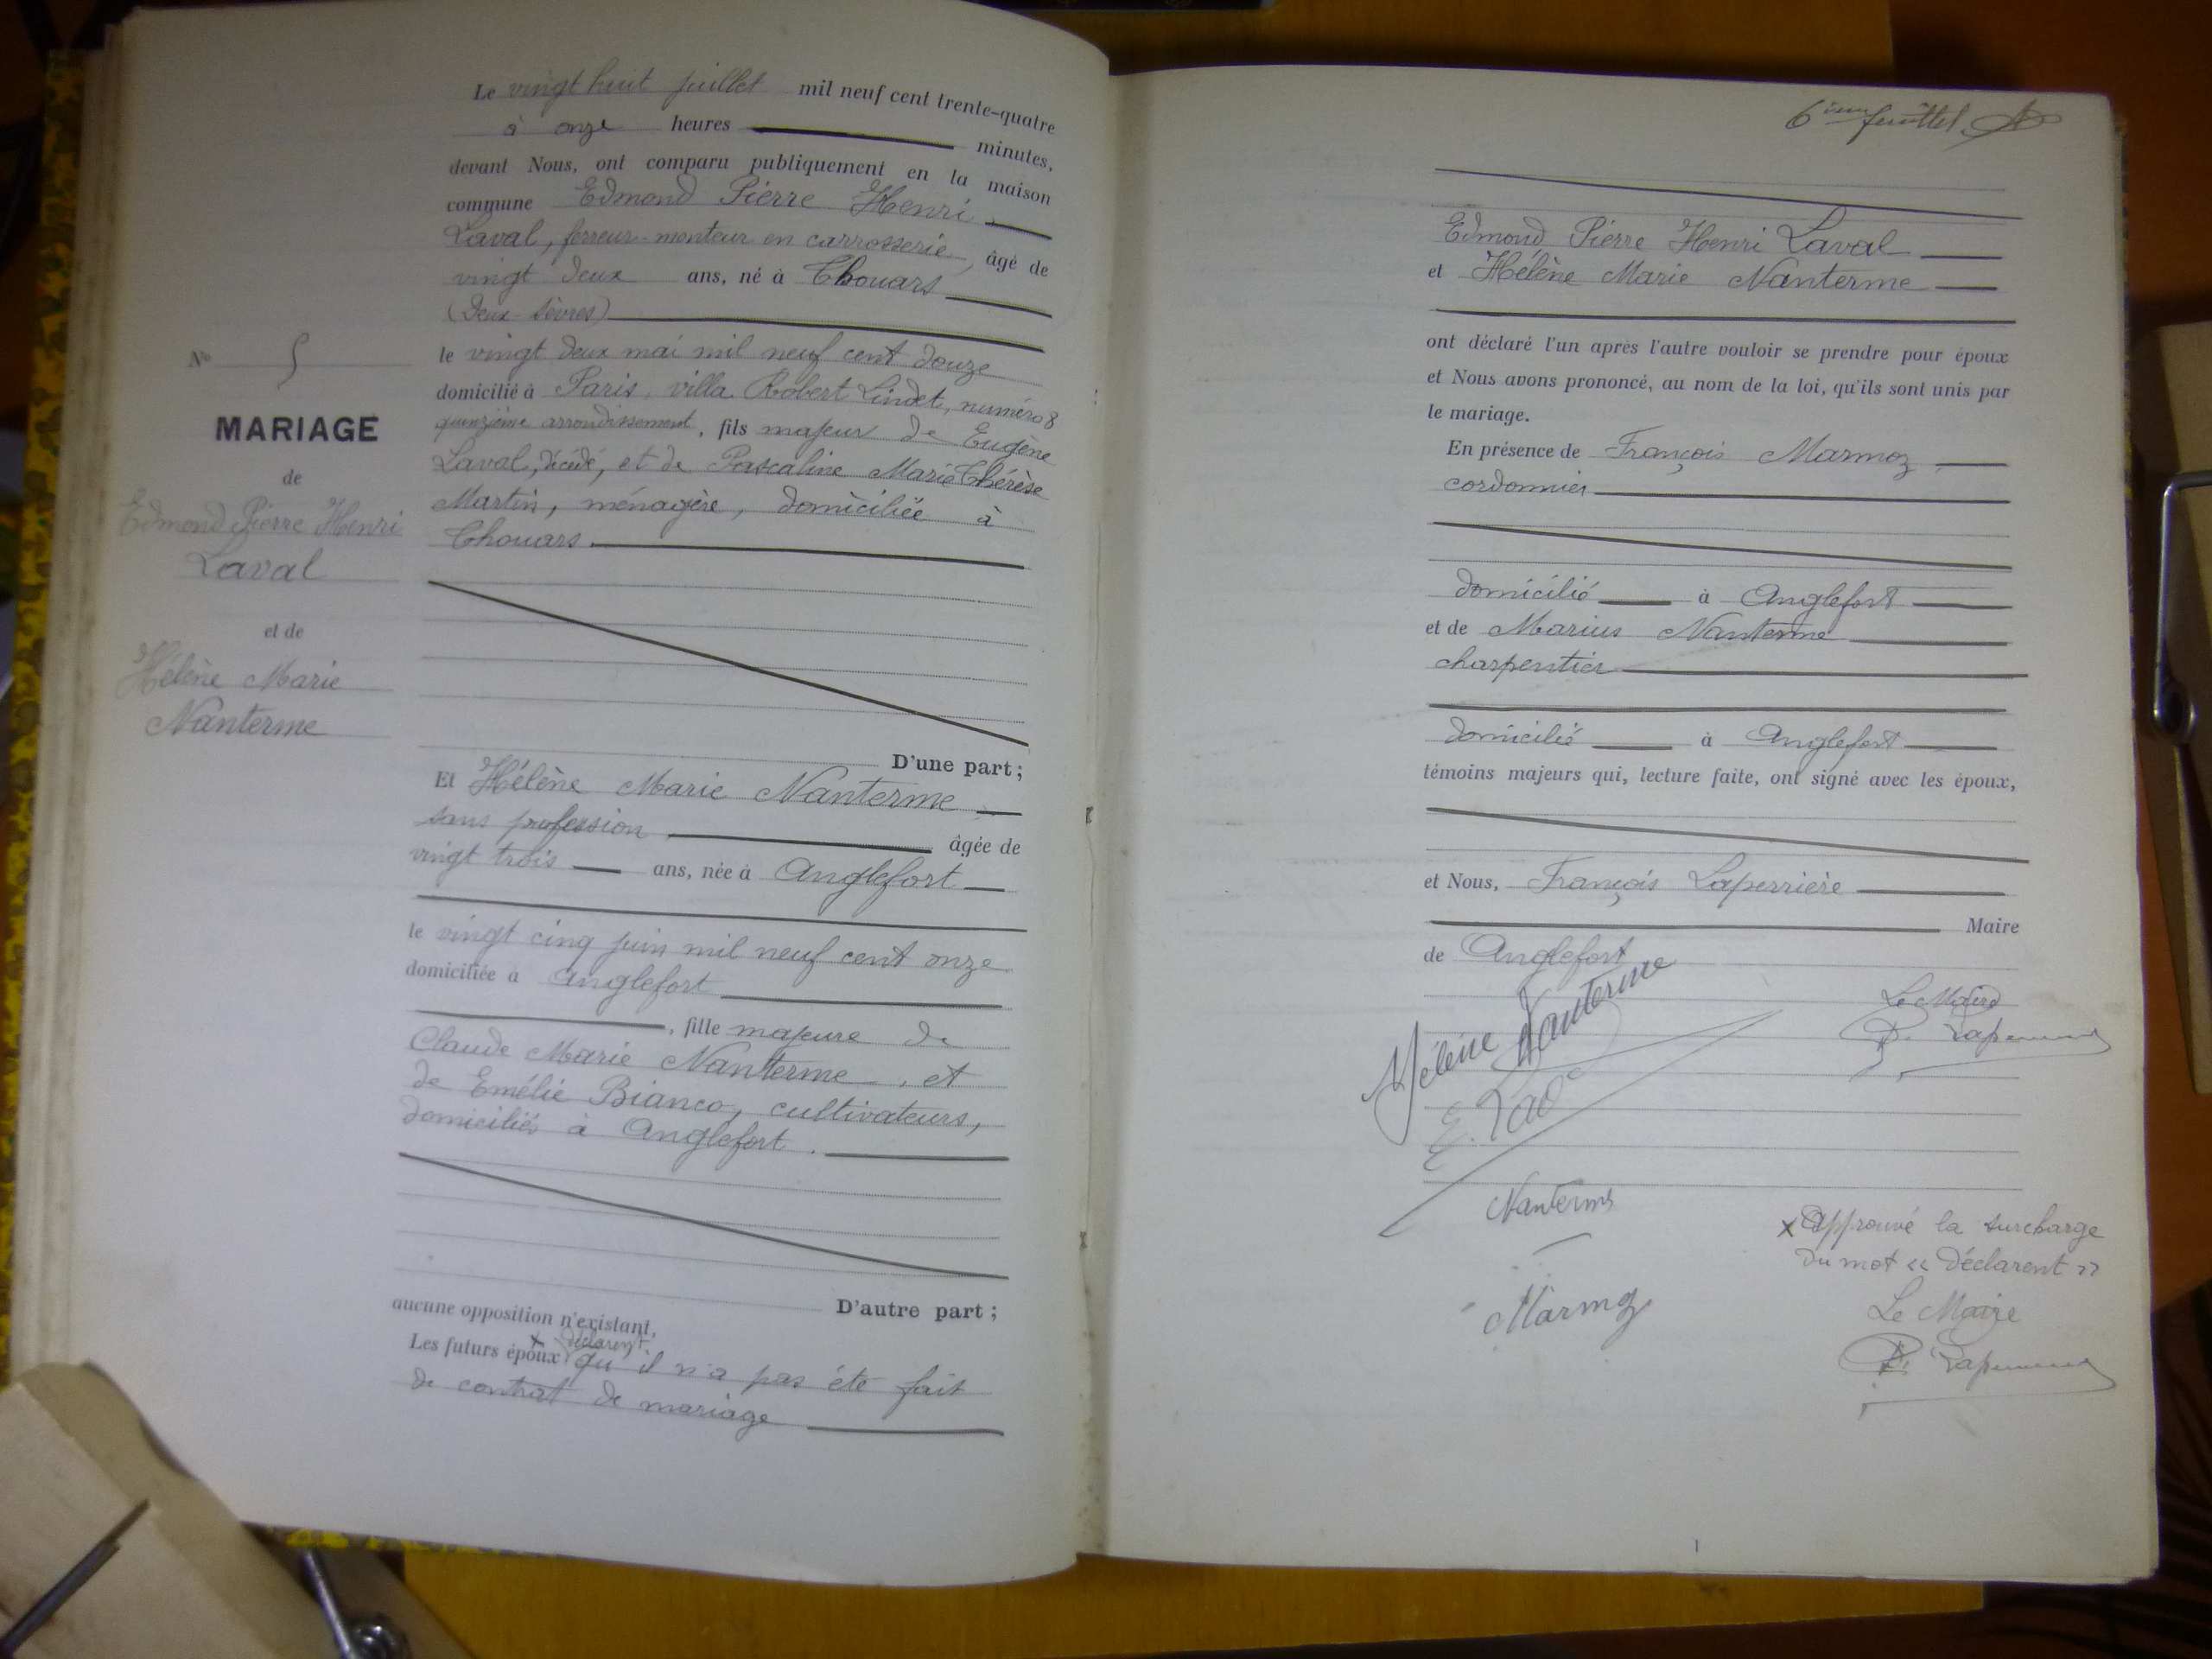 Le vingt huit juillet mil neuf cent trente-quatre
à onze heures minutes,
devant Nous, ont comparu publiquement en la maison
commune Edmond Pierre Henri
Laval, ferreur-monteur en carrosserie, âgé de
vingt deux ans, né à Thouars
(Deux Sèvres)
le vingt deux mai mil neuf cent douze
domicilié à Paris, villa Robert Lindet, numéro 8
quinzième arrondissement, fils majeur de Eugène
Laval, décédé, et de Pascaline Marie Thérèse
Martin, ménagère, domiciliée à
Thouars.
D'une part;
Et Hélène Marie Nanterme
sans profession âgée de
vingt trois ans, née à Anglefort
le vingt cinq juin mil neuf cent onze
domiciliée à Anglefort
, fille majeure de
Claude Marie Nanterme, et
de Emélie Bianco, cultivateurs,
domiciliés à Anglefort.
D'autre part;
aucune opposition n'existant,
Les futurs époux x déclarent
qu'il n'a pas été fait
de contrat de mariage
No 5
MARIAGE
de
Edmond Pierre Henri
Laval
et de
Hélène Marie
Nanterme
6ième feuillet
Edmond Pierre Henri Laval
et Hélène Marie Nanterme
ont déclaré l'un après l'autre vouloir se prendre pour époux
et Nous avons prononcé, au nom de la loi, qu'ils sont unis par
le mariage.
En présence de François Marmoz,
cordonnier
domicilié à Anglefort
et de Marius Nanterme
charpentier
domicilié à Anglefort
témoins majeurs qui, lecture faite, ont signé avec les époux,
et Nous, François Laperrière
Maire
de Anglefort
Hélène Nanterme
Le Maire
Nanterme
Marmoz
x Approuvé la surcharge
du mot « déclarent »
Le Maire